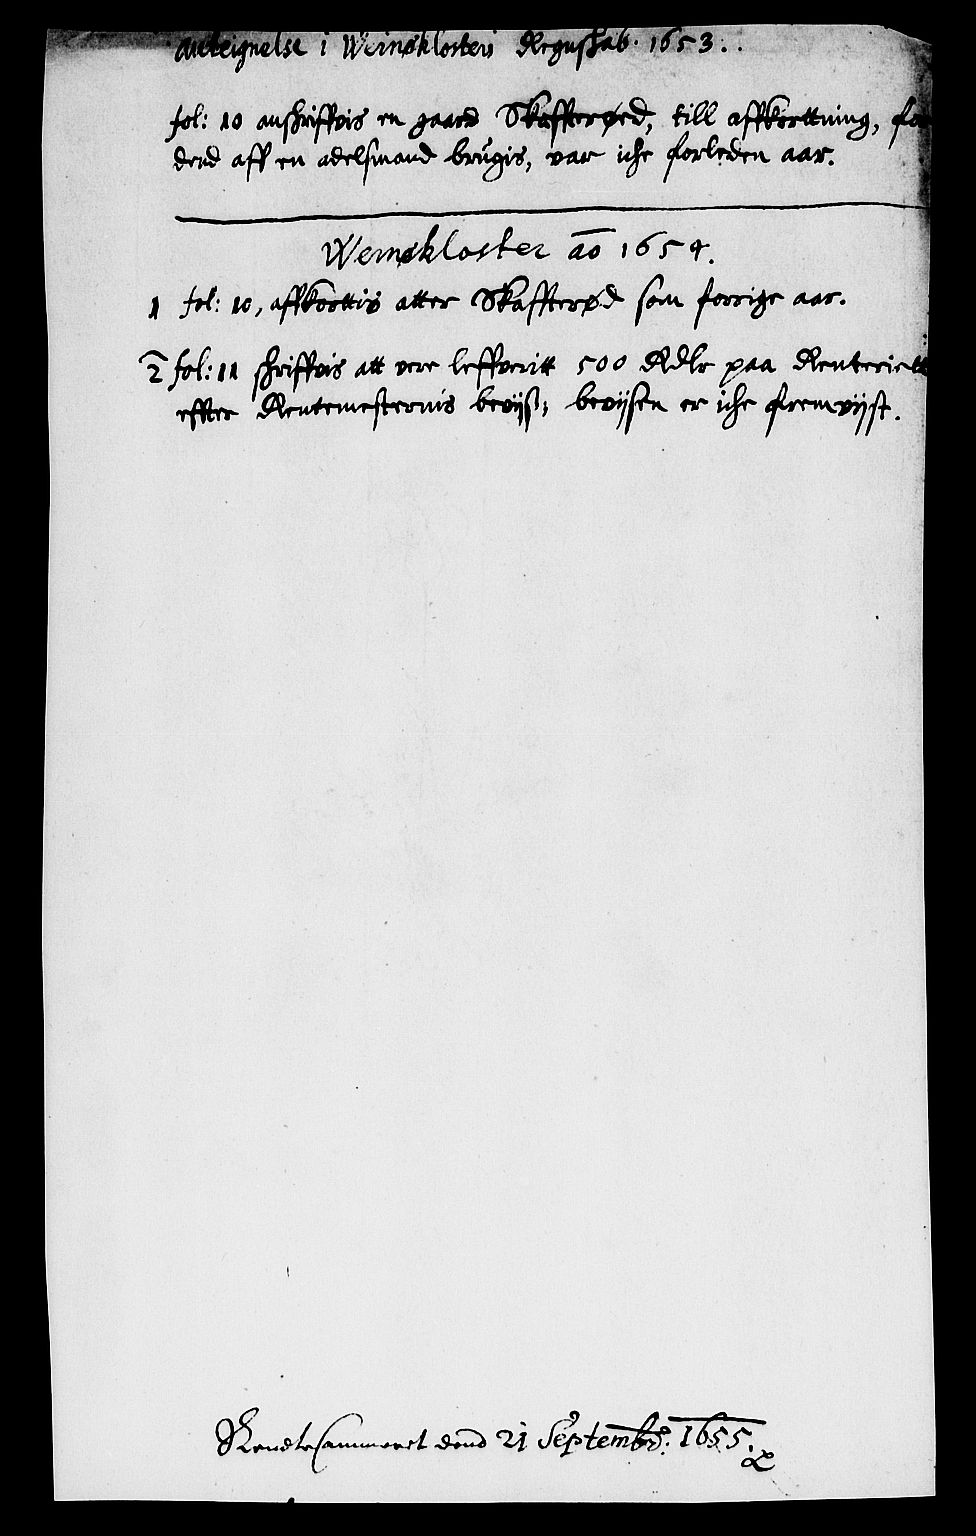 Anteignelse i Wernøklosters Regnskab. 1653.
fol: 10 anskriffvis en gaard Skaffterøed, till affkorttning, for
dend aff en adelsmand brùgis, var iche forleden aar.
Wernøkloster ao 1654.
1 fol: 10, affkorttis atter Skaffterød som forrige aar.
2 fol: 11 skriffvis att vere leffveritt 500 Rdlr paa Renteriett
effter Rentemesternis beviiß; beviisen er iche fremviist.
RendteCammeret dend 21 Septembr: 1655.